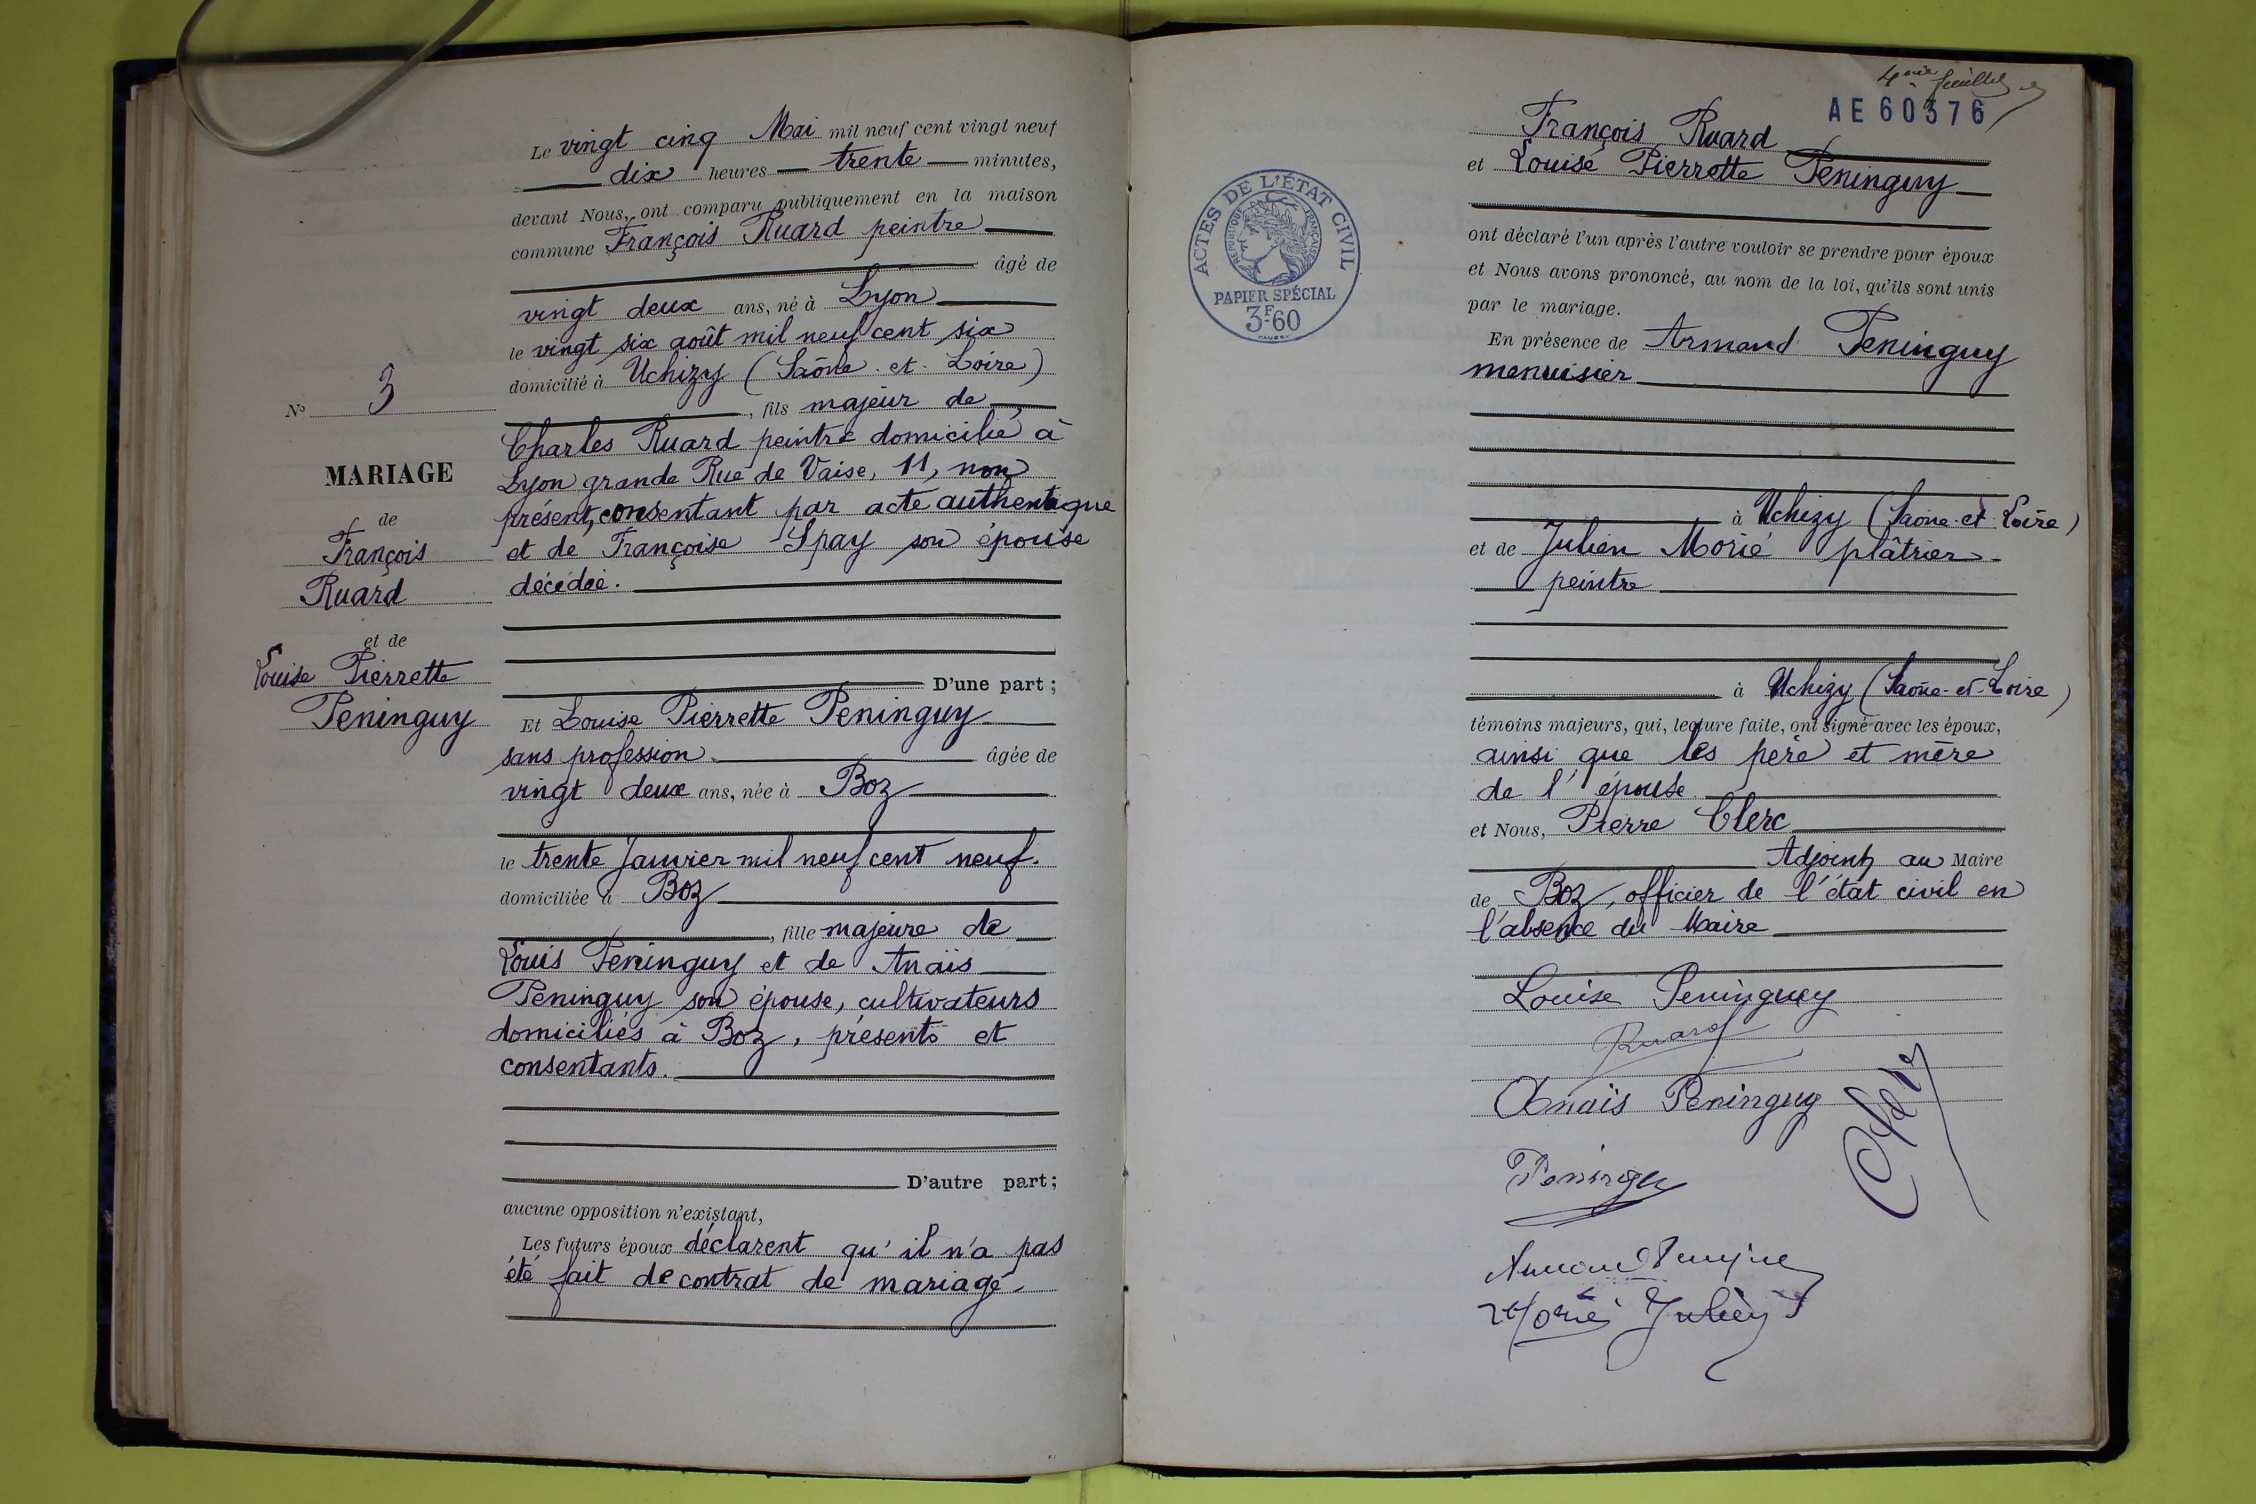 Le vingt cinq Mai mil neuf cent vingt neuf
dix heures trente minutes,
devant Nous, ont comparu publiquement en la maison
commune François Ruard peintre
âgé de
vingt deux ans, né à Lyon
le vingt six août mil neuf cent six
domicilié à Uchizy (Saône-et-Loire)
, fils majeur de
Charles Ruard peintre domicilié à
Lyon grande Rue de Vaise, 11, non
présent, consentant par acte authentique
et de Françoise Spay son épouse
décédée.
D'une part ;
Et Louise Pierrette Peninguy
sans profession. âgée de
vingt deux ans, née à Boz
le trente Janvier mil neuf cent neuf.
domiciliée à Boz
, fille majeure de
Louis Peninguy et de Anaïs
Peninguy son épouse, cultivateurs
domiciliés à Boz, présents et
consentants.
D'autre part ;
aucune opposition n'existant,
Les futurs époux déclarent qu'il n'a pas
été fait de contrat de mariage
No 3
MARIAGE
de
François
Ruard
et de
Louise Pierrette
Peninguy
4me feuillet
AE 60376
François Ruard
et Louise Pierrette Peninguy
ont déclaré l'un après l'autre vouloir se prendre pour époux
et Nous avons prononcé, au nom de la loi, qu'ils sont unis
par le mariage.
En présence de Armand Peninguy
menuisier
à Uchizy (Saône-et-Loire)
et de Julien Morié plâtrier
peintre
à Uchizy (Saône-et-Loire)
témoins majeurs, qui, lecture faite, ont signé avec les époux,
ainsi que les père et mère
de l'épouse
et Nous, Pierre Clerc
Adjoint au Maire
de Boz, officier de l'état civil en
l'absence du Maire
Louise Peninguy
Ruard
Anaïs Peninguy
Clerc
Peninguy
Armand Peninguy
Morié Julien
ACTES DE L'ÉTAT CIVIL
RÉPUBLIQUE FRANÇAISE
PAPIER SPÉCIAL
3F60